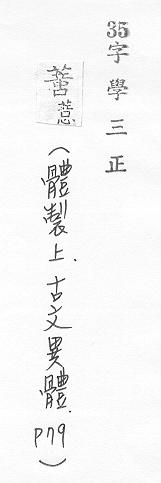 35字學三正
薏(體製上.古文異體.P79)